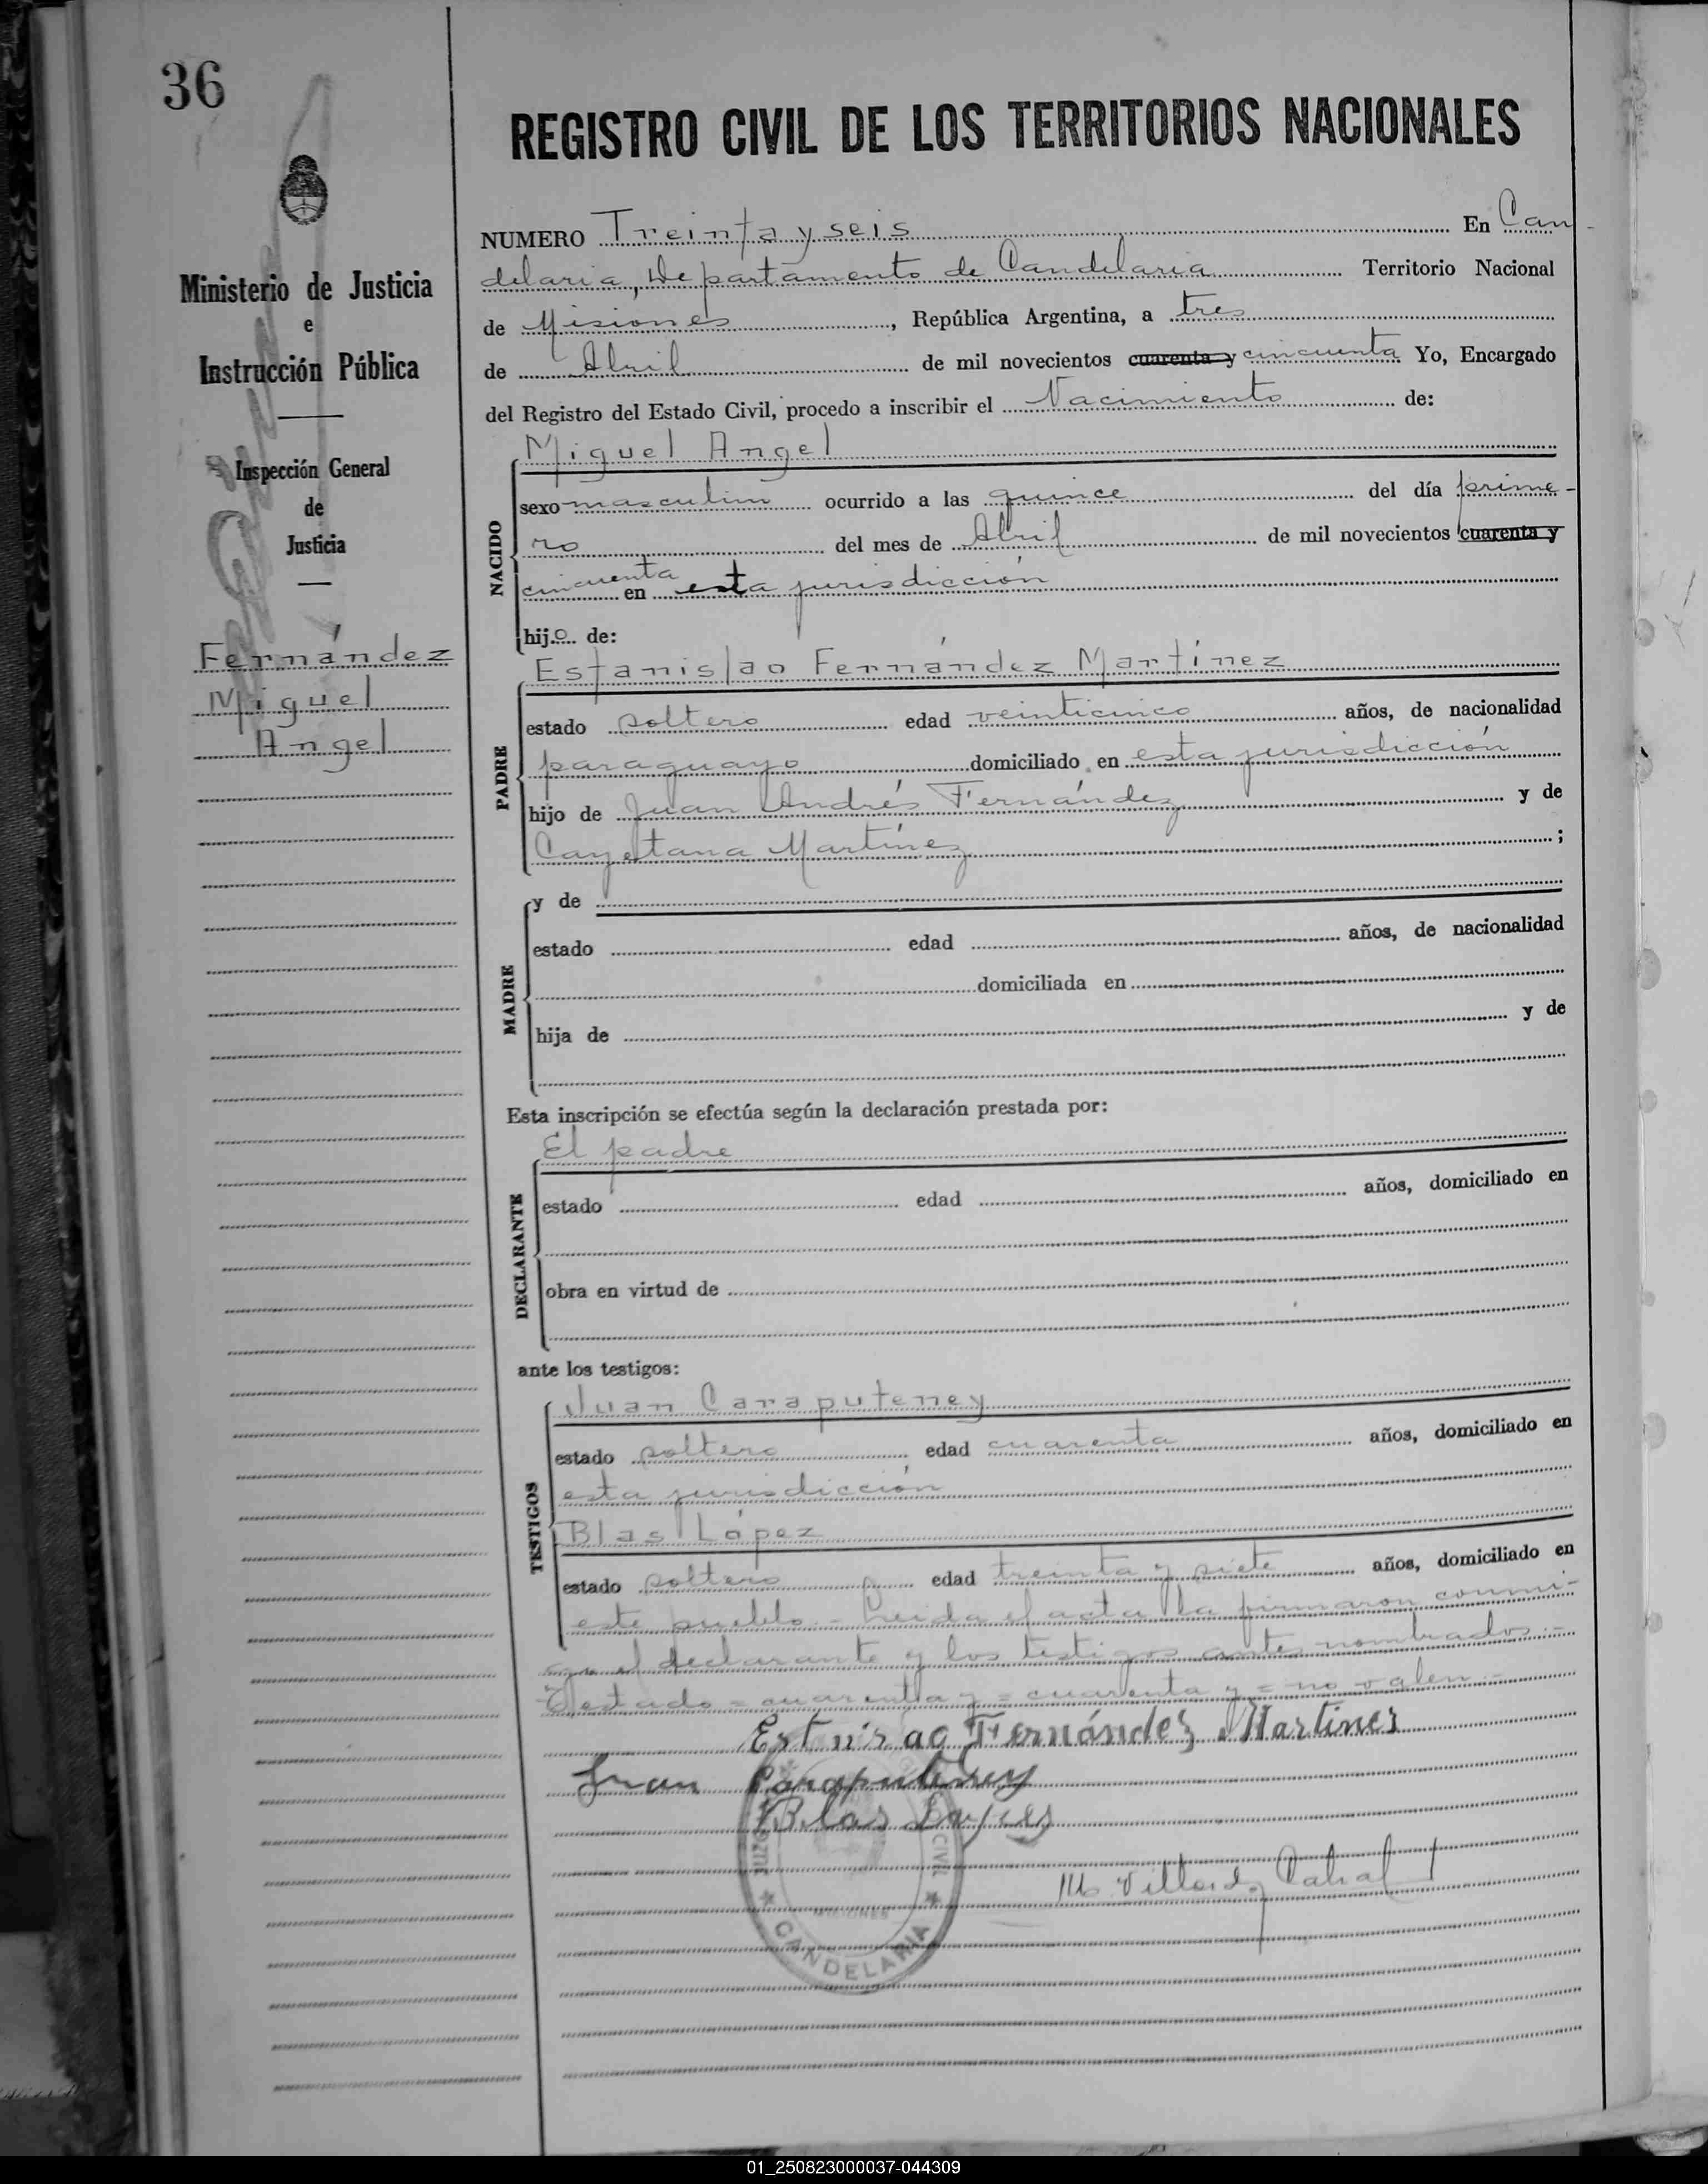 36
REGISTRO CIVIL DE LOS TERRITORIOS NACIONALES
Ministerio de Justicia
e
Instrucción Pública
Inspección General
de
Justicia
Fernández
Miguel
Angel
NUMERO Treinta y seis En Can-
delaria, Departamento de Candelaria Territorio Nacional
de Misiones, República Argentina, a tres
de Abril de mil novecientos cuarenta y cincuenta Yo, Encargado
del Registro del Estado Civil, procedo a inscribir el Nacimiento de:
NACIDO
Miguel Angel
sexo masculino ocurrido a las quince del día prime-
ro del mes de Abril de mil novecientos cuarenta y
cincuenta en esta jurisdicción
hijo de:
PADRE
Estanislao Fernández Martínez
estado soltero edad veinticinco años, de nacionalidad
paraguayo domiciliado en esta jurisdicción
hijo de Juan Andrés Fernández y de
Cayetana Martínez ;
MADRE
y de
estado edad años, de nacionalidad
domiciliada en
hija de y de
Esta inscripción se efectúa según la declaración prestada por:
DECLARANTE
El padre
estado edad años, domiciliado en
obra en virtud de
ante los testigos:
TESTIGOS
Juan Caraputeney
estado soltero edad cuarenta años, domiciliado en
esta jurisdicción
Blas López
estado soltero edad treinta y siete años, domiciliado en
este pueblo.- Leida el acta la firmaron conmi-
go el declarante y los testigos antes nombrados.-
Testado = cuarenta y = cuarenta y = no valen.-
Estnisao Fernández Martinez
Juan Caraputeney
Blas Lopes
Villord Cabral
CIVIL
MISIONES
CANDELARIA
01_250823000037-044309